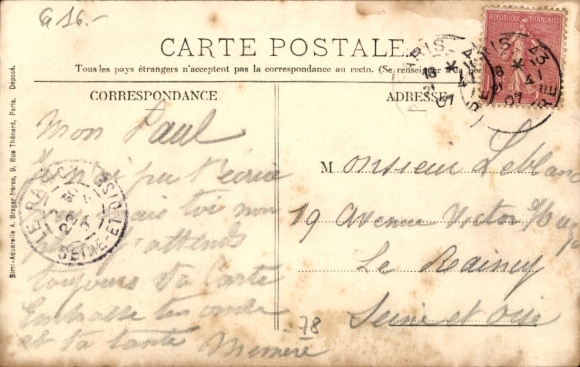 G 16.-
CARTE POSTALE
Tous les pays étrangers n'acceptent pas la correspondance au recto. (Se renseigner
CORRESPONDANCE
ADRESSE
Simi-Aquarelle A. Breger frères, 9, Rue Thénard, Paris. Déposé.
RÉPUBLIQUE FRANÇAISE
PARIS
43
07
LE RAINCY
SEINE-ET-OISE
Mon Paul
pu t'écrire
toi mon
attends
toujours ta carte
Embrasse ton oncle
et ta tante
M Monsieur Leblanc
19 Avenue Victor Hugo
Le Raincy
Seine et Oise
78